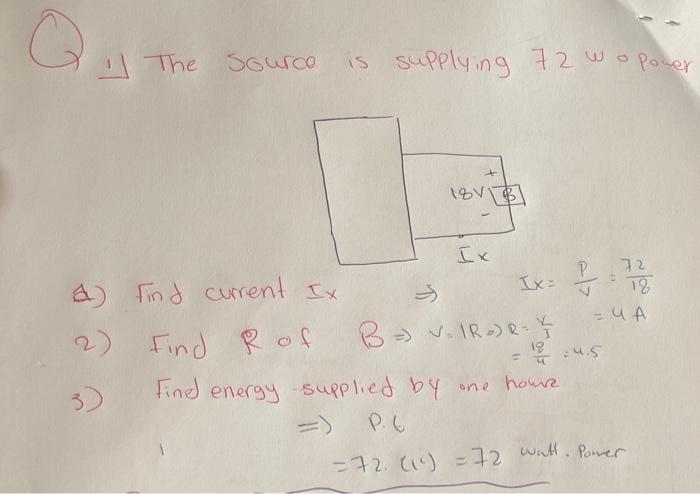 Q 1) The Source is supplying 72 w o power
+
18V B
-
Ix
1) Find current Ix ⇒ Ix = P/V = 72/18
= 4 A
2) Find R of B ⇒ V = IR ⇒ R = V/I
= 18/4 = 4.5
3) Find energy supplied by one houre
⇒ P.t
= 72. (1) = 72 watt. Power